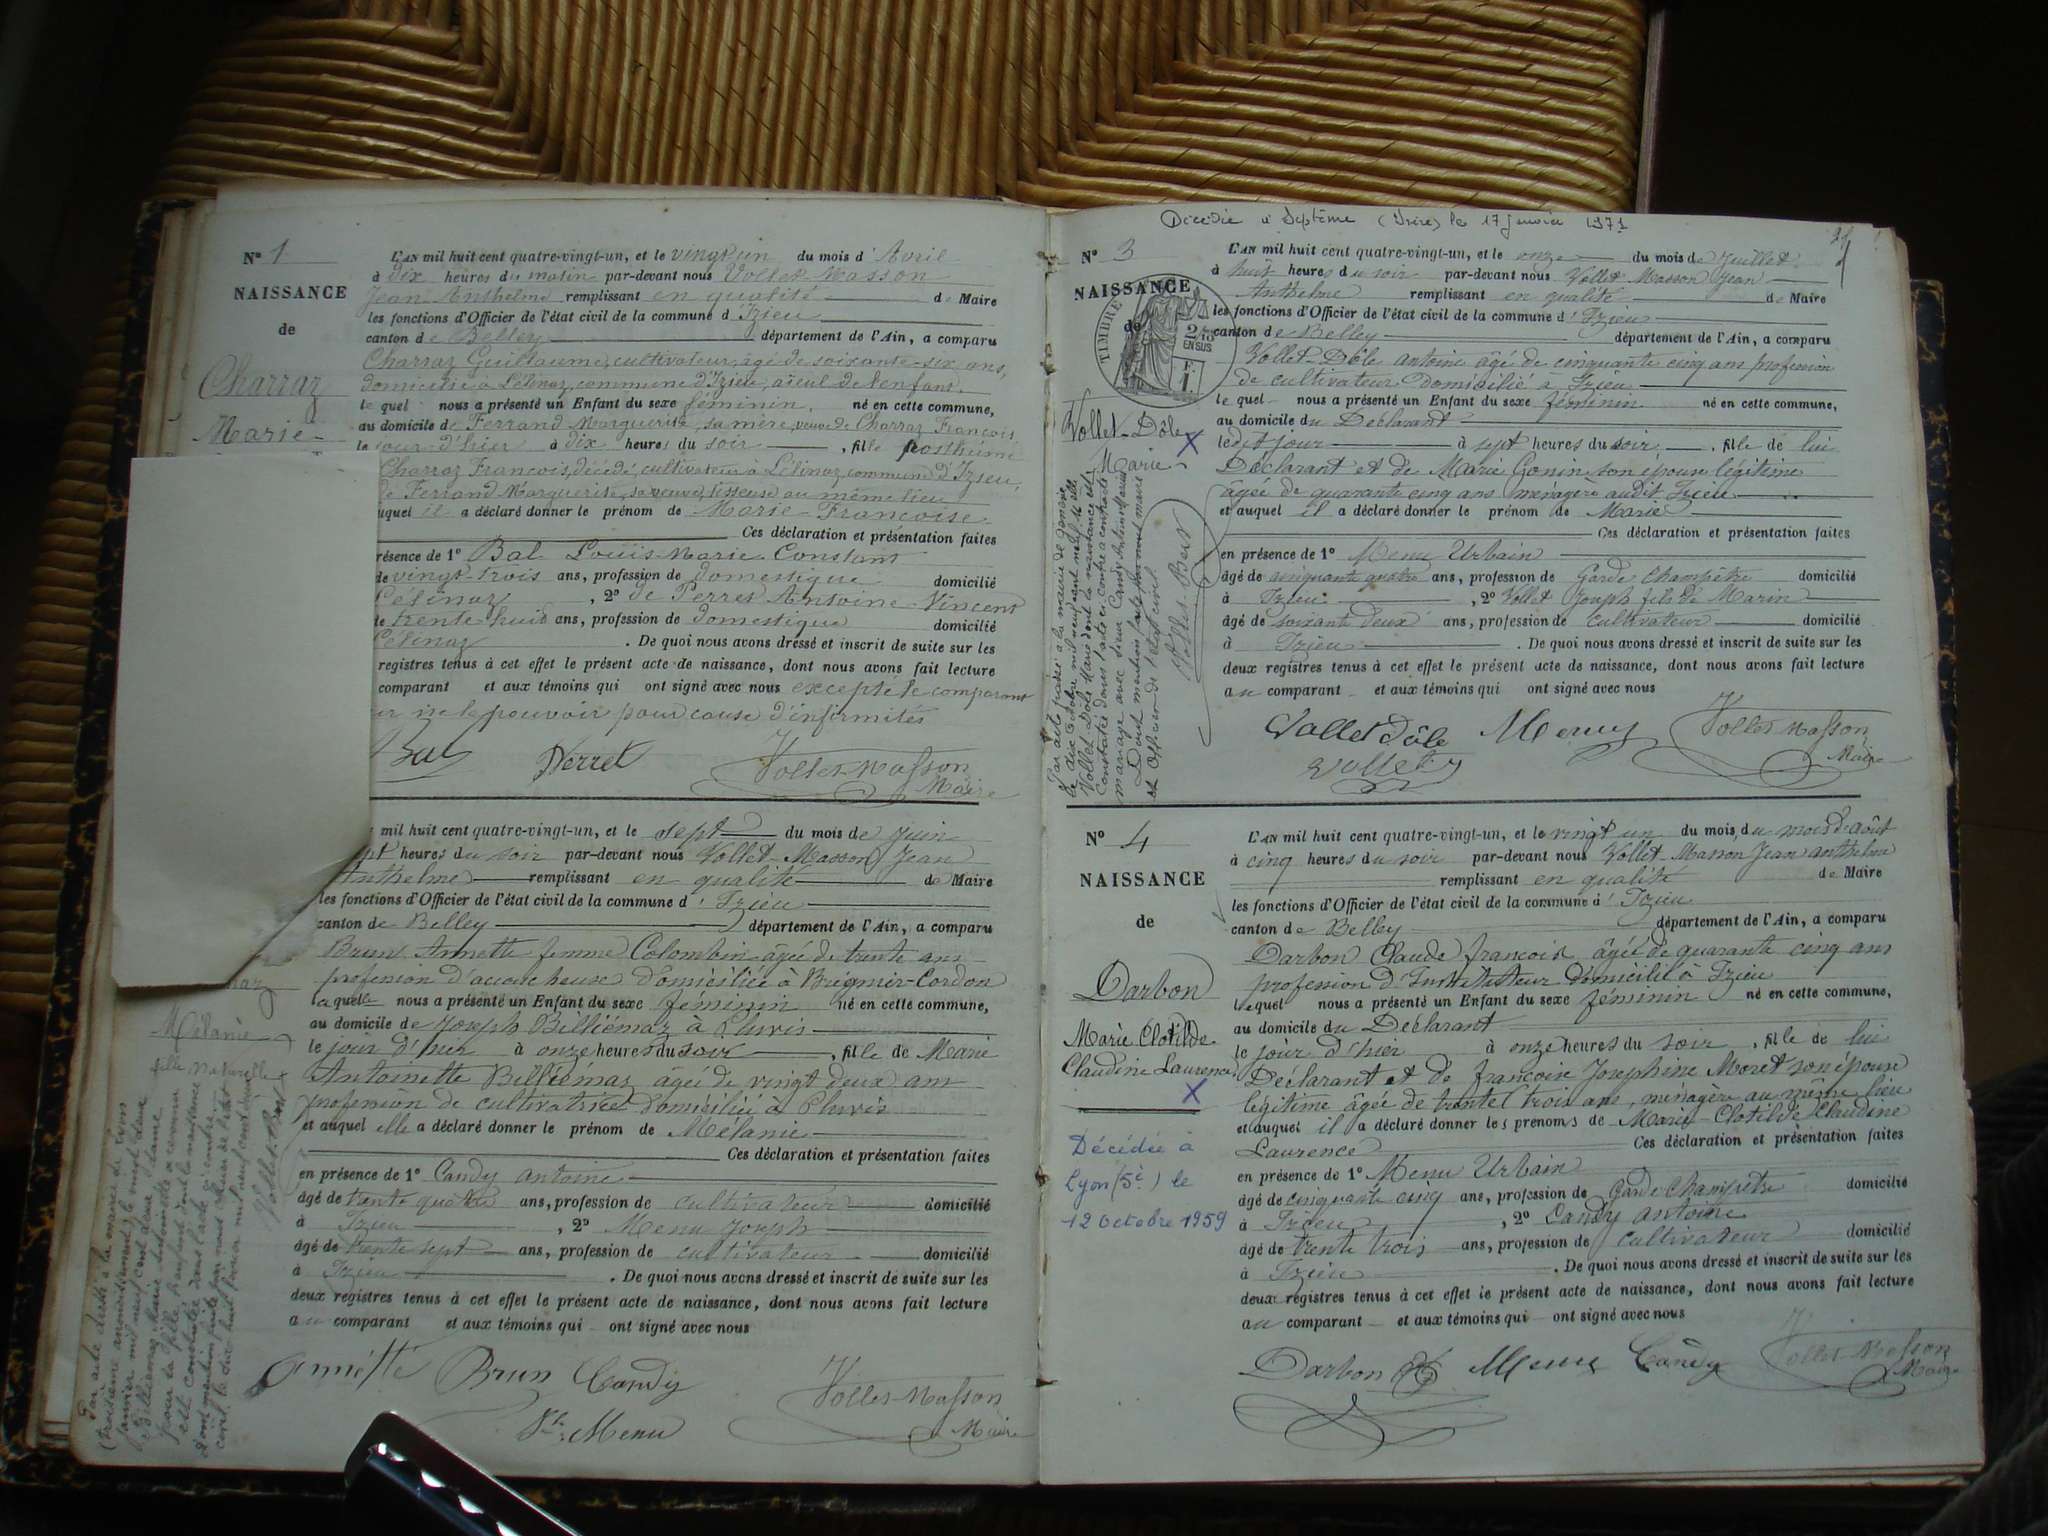 N° 1
NAISSANCE
de
Charraz
Marie
L'AN mil huit cent quatre-vingt-un, et le vingt un du mois d'Avril
à dix heures du matin par-devant nous Vollet-Masson
Jean Anthelme remplissant en qualité de Maire
les fonctions d'Officier de l'état civil de la commune d'Izieu
canton de Belley département de l'Ain, a comparu
Charraz Guillaume, cultivateur, âgé de soixante-six ans,
domicilié à Lélinaz, commune d'Izieu, aïeul de l'enfant
lequel nous a présenté un Enfant du sexe féminin, né en cette commune,
au domicile de Ferrand Marguerite, sa mère, veuve de Charraz François
le jour d'hier à dix heures du soir, fille posthume
Charraz François, décédé, cultivateur à Lélinaz, commune d'Izieu,
de Ferrand Marguerite, sa veuve, tisseuse au même lieu
auquel il a déclaré donner le prénom de Marie-Françoise.
Ces déclaration et présentation faites
résence de 1° Bal Louis-Marie-Constant
de vingt-trois ans, profession de domestique domicilié
Lélinaz, 2° de Perret Antoine-Vincent
de trente huit ans, profession de domestique domicilié
Lélinaz. De quoi nous avons dressé et inscrit de suite sur les
registres tenus à cet effet le présent acte de naissance, dont nous avons fait lecture
comparant et aux témoins qui ont signé avec nous excepté le comparant
ne le pouvoir pour cause d'infirmités
Bal Perret Vollet-Masson
Maire
mil huit cent quatre-vingt-un, et le sept du mois de Juin
sept heures du soir par-devant nous Vollet-Masson Jean
Anthelme remplissant en qualité de Maire
les fonctions d'Officier de l'état civil de la commune d'Izieu
canton de Belley département de l'Ain, a comparu
Brun Annette femme Colombin âgée de trente ans
profession d'accoucheuse domiciliée à Brégnier-Cordon
laquelle nous a présenté un Enfant du sexe féminin né en cette commune,
au domicile de Joseph Billiémaz à Pluvis
le jour d'hier à onze heures du soir, fille de Marie
Antoinette Billiémaz âgée de vingt deux ans
profession de cultivatrice domiciliée à Pluvis
et auquel elle a déclaré donner le prénom de Mélanie
Ces déclaration et présentation faites
en présence de 1° Candy Antoine
âgé de trente quatre ans, profession de cultivateur domicilié
à Izieu, 2° Menu Joseph
âgé de trente sept ans, profession de cultivateur domicilié
à Izieu. De quoi nous avons dressé et inscrit de suite sur les
deux registres tenus à cet effet le présent acte de naissance, dont nous avons fait lecture
au comparant et aux témoins qui ont signé avec nous
Annette Brun Candy Vollet-Masson
Menu Maire
Mélanie
fille naturelle
Par acte dressé à la mairie de
(troisième arrondissement) le vingt deux
janvier mil neuf cent deux, dame
Billiémaz Marie Antoinette a reconnu
pour sa fille l'enfant dont la naissance
est constatée dans l'acte ci-contre
dont mention faite par nous officier de l'état
Décédée à Septème (Isère) le 17 janvier 1971
N° 3
NAISSANCE
de
TIMBRE
2/10
EN SUS
F.
1.
Vollet-Dôle
Marie
X
L'AN mil huit cent quatre-vingt-un, et le onze du mois de Juillet
à huit heures du soir par-devant nous Vollet Masson Jean
Anthelme remplissant en qualité de Maire
les fonctions d'Officier de l'état civil de la commune d'Izieu
canton de Belley département de l'Ain, a comparu
Vollet-Dôle Antoine âgé de cinquante cinq ans profession
de cultivateur domicilié à Izieu
lequel nous a présenté un Enfant du sexe féminin né en cette commune,
au domicile du Déclarant
ledit jour à sept heures du soir, fille de lui
Déclarant et de Marie Gonin son épouse légitime
âgée de quarante cinq ans ménagère audit Izieu
et auquel il a déclaré donner le prénom de Marie
Ces déclaration et présentation faites
en présence de 1° Menu Urbain
âgé de cinquante quatre ans, profession de Garde Champêtre domicilié
à Izieu, 2° Vollet Joseph fils de Marin
âgé de soixante deux ans, profession de cultivateur domicilié
à Izieu. De quoi nous avons dressé et inscrit de suite sur les
deux registres tenus à cet effet le présent acte de naissance, dont nous avons fait lecture
au comparant et aux témoins qui ont signé avec nous
Vollet Dôle Menu Vollet-Masson
Vollet Maire
Par acte passé à la mairie de
le dix Octobre mil neuf cent neuf, la dlle
Vollet-Dôle Marie dont la naissance est
constatée dans l'acte ci-contre a contracté
mariage avec sieur Candy Antoine Marius
Dont mention faite par nous maire
et Officier de l'état civil
Vollet-Bert
N° 4
NAISSANCE
de
Darbon
Marie Clotilde
Claudine Laurence
X
Décédée à
Lyon (5è) le
12 Octobre 1959
L'AN mil huit cent quatre-vingt-un, et le vingt un du mois du mois d'août
à cinq heures du soir par-devant nous Vollet-Masson Jean Anthelme
remplissant en qualité de Maire
les fonctions d'Officier de l'état civil de la commune d'Izieu
canton de Belley département de l'Ain, a comparu
Darbon Claude François âgé de quarante cinq ans
profession d'Instituteur domicilié à Izieu
lequel nous a présenté un Enfant du sexe féminin né en cette commune,
au domicile du Déclarant
le jour d'hier à onze heures du soir, fille de lui
Déclarant et de Françoise Josephine Moret son épouse
légitime âgée de trente trois ans, ménagère au même lieu
et auquel il a déclaré donner les prénoms de Marie-Clotilde Claudine
Laurence Ces déclaration et présentation faites
en présence de 1° Menu Urbain
âgé de cinquante cinq ans, profession de Garde Champêtre domicilié
à Izieu, 2° Candy Antoine
âgé de trente trois ans, profession de cultivateur domicilié
à Izieu. De quoi nous avons dressé et inscrit de suite sur les
deux registres tenus à cet effet le présent acte de naissance, dont nous avons fait lecture
au comparant et aux témoins qui ont signé avec nous
Darbon Menu Candy Vollet-Masson
Maire